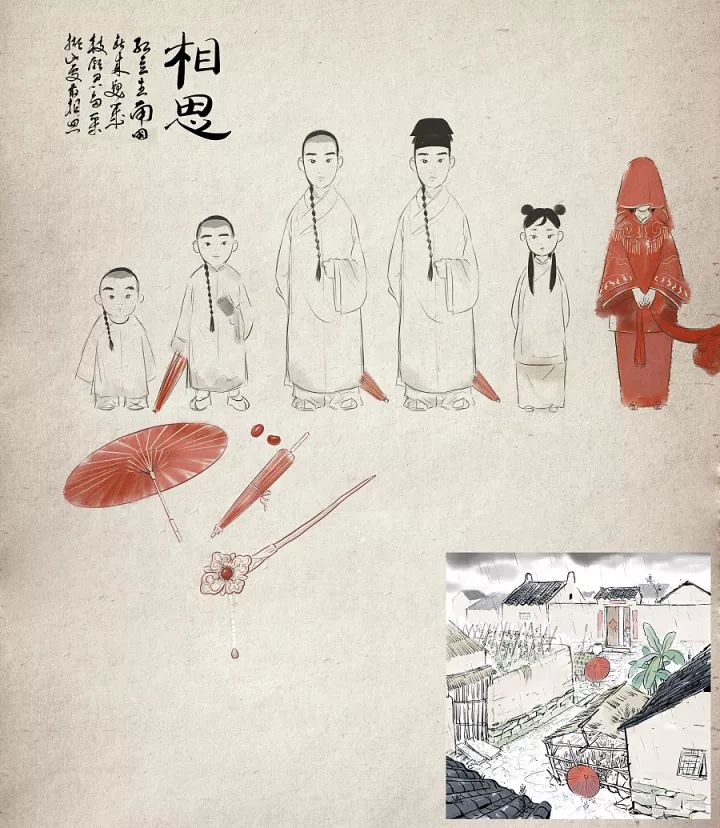 相思
红豆生南国
来发几
枝愿君多采
撷此物最相思